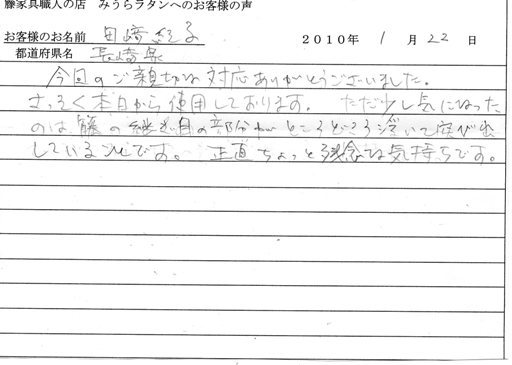 藤家具職人の店 みうらラタンへのお客様の声
お客様のお名前 田崎 紀子 2010年 1月 22日
都道府県名 長崎県
今回のご親切な対応ありがとうございました。
さっそく本日から使用しております。 ただ少し気になった
のは籐の継ぎ目の部分がところどころ浮いて突び出
していることです。 正直ちょっと残念な気持ちです。